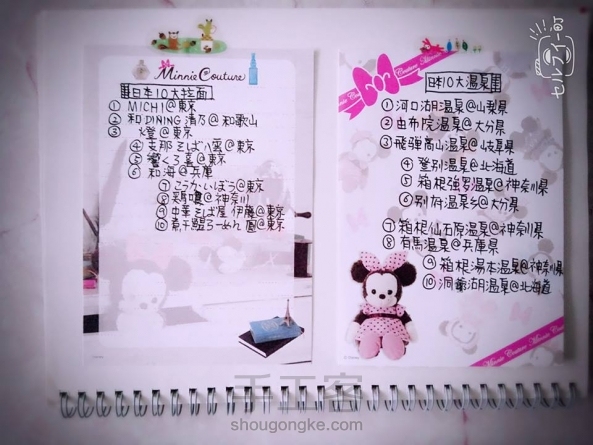 Minnie Couture
日本10大拉面
① MICHI@東京
② 和DINING 清乃@和歌山
③ 燈@東京
④ 支那そば八雲@東京
⑤ 響くろ喜@東京
⑥ 和海@兵庫
⑦ こうかいぼう@東京
⑧ 麺鳴@神奈川
⑨ 中華そば屋 伊藤@東京
⑩ 煮干鰮らーめん 圓@東京
Minnie Couture
日本10大温泉
① 河口湖温泉@山梨県
② 由布院温泉@大分県
③ 飛騨高山温泉@岐阜県
④ 登别温泉@北海道
⑤ 箱根強羅温泉@神奈川県
⑥ 别府温泉乡@大分県
⑦ 箱根仙石原温泉@神奈川県
⑧ 有馬温泉@兵庫県
⑨ 箱根湯本温泉@神奈川県
⑩ 洞爺湖温泉@北海道
Minnie Couture
セルフィー町
手工客
shougongke.com